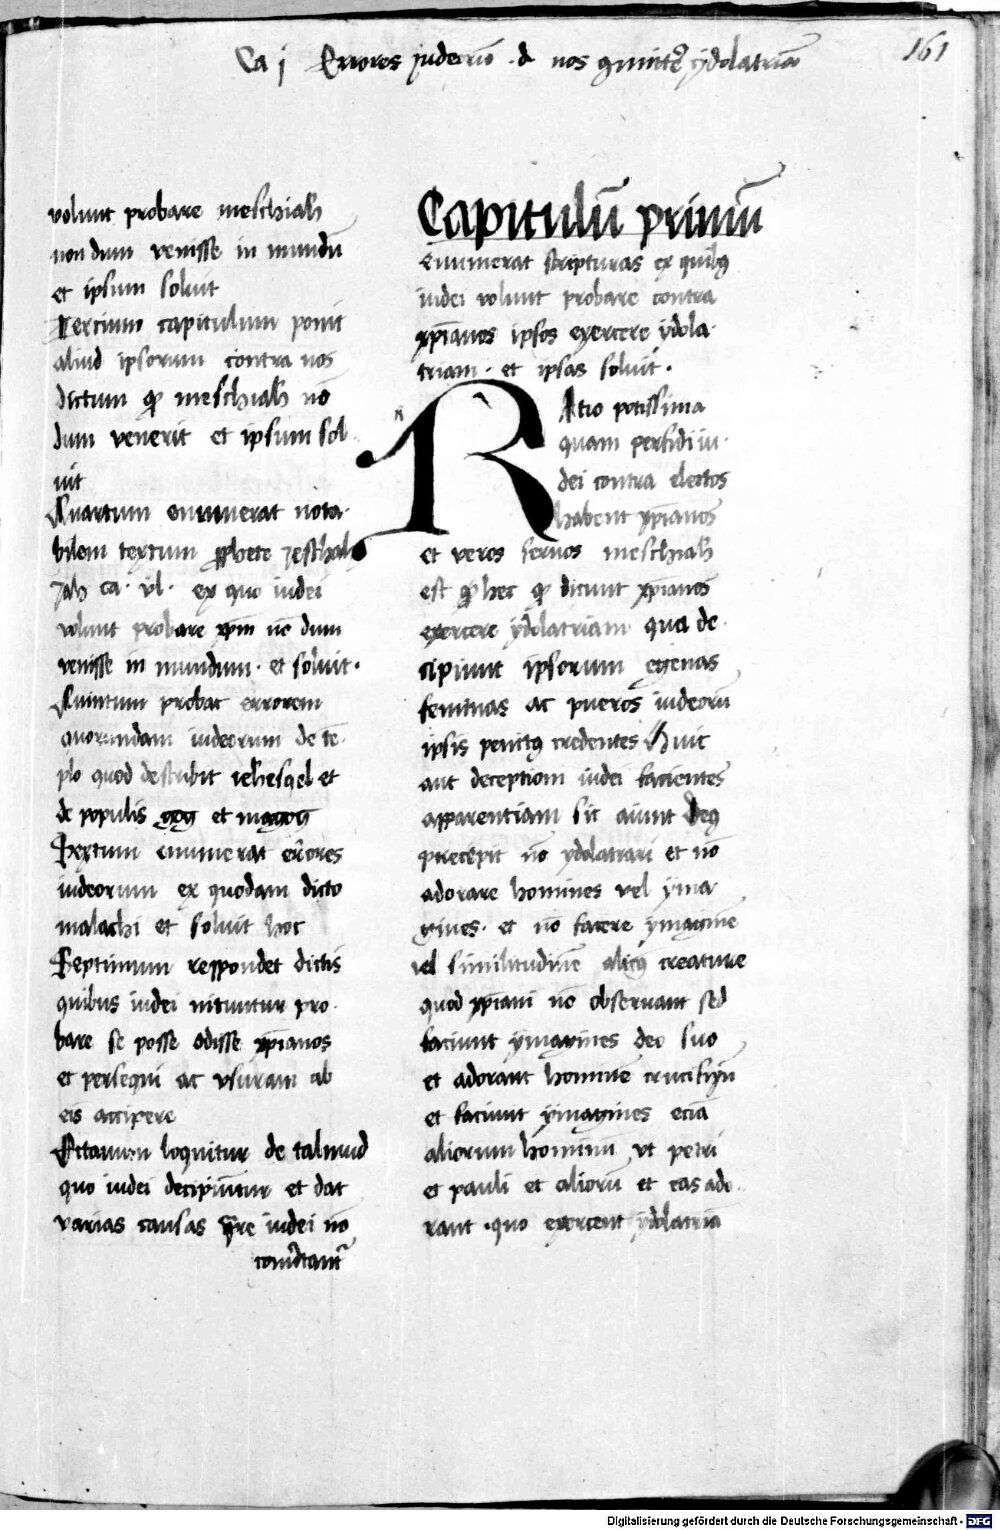 Ca j Errores iudeorū d nos ydolatriā
161
volunt probare meschiah
non dum venisse in mundū
et ipsum soluit
Tercium capitulum ponit
aliud ipsorum contra nos
dictum ꝙ meschiah nō
dum venerit et ipsum sol
uit
Quartum enumerat nota
bilem textum ꝓphete
Jah ca. vl. ex quo iudei
volunt probare xp̄m nō dum
venisse in mundum. et soluit.
Quintum probat errorem
quorundam iudeorum de tē
plo quod describit iehesqel et
de populis gog et magog
Sextum enumerat errores
iudeorum ex quodam dicto
malachi et soluit hoc
Septimum respondet dictis
quibus iudei nituntur pro
bare se posse odisse xp̄ianos
et persequi ac vsuram ab
eis accipere
Octauum loquitur de talmud
quo iudei decipiūtur et dat
varias causas q̄re iudei nō
Capitulū primū
Enumerat scripturas ex quibꝰ
iudei volunt probare contra
xp̄ianos ipsos exercere ydola
triam. et ipsas soluit.
RAtio potissima
quam perfidi iu
dei contra electos
habent xp̄ianos
et veros seruos meschiah
est hec ꝙ dicunt xp̄ianos
exercere ydolatriam qua de
cipiunt ipsorum egenas
feminas ac pueros iudeorū
ipsis penitꝰ credentes Huic
aut deceptioni iudei facientes
apparentiam sic aiunt Deꝰ
precepit nō ydolatrari et nō
adorare homines vel yma
gines. et nō facere ymaginē
vel similitudinē alicꝰ creature
quod xp̄iani nō obseruant sed
faciunt ymagines deo suo
et adorant hominē crucifixū
et faciunt ymagines eciā
aliorum hominū vt petri
et pauli et aliorū et eas ado
rant. quo exercent ydolatriā